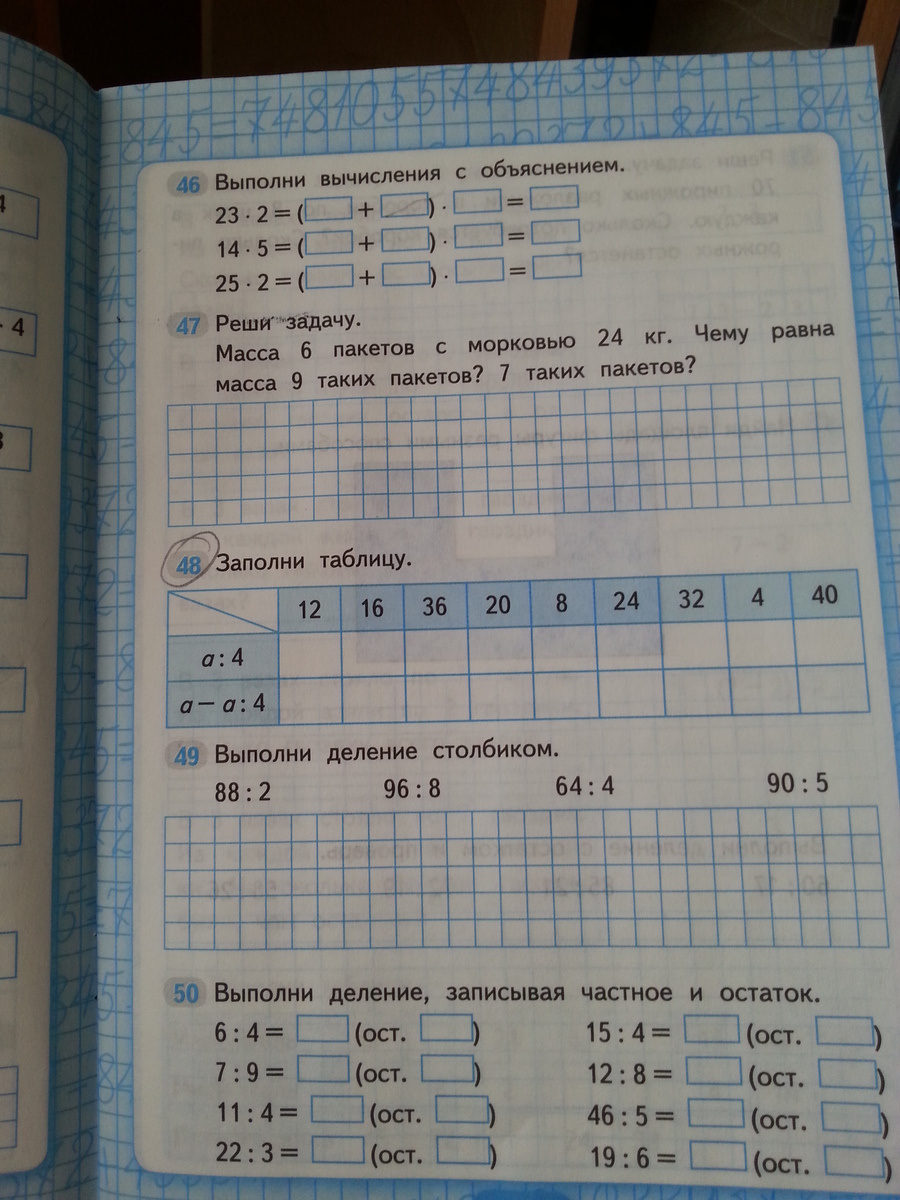 845=7481055748439574
4
· 4
46 Выполни вычисления с объяснением.
23 · 2 = ( + ) · =
14 · 5 = ( + ) · =
25 · 2 = ( + ) · =
47 Реши задачу.
Масса 6 пакетов с морковью 24 кг. Чему равна
масса 9 таких пакетов? 7 таких пакетов?
48 Заполни таблицу.
12 16 36 20 8 24 32 4 40
a : 4
a − a : 4
49 Выполни деление столбиком.
88 : 2 96 : 8 64 : 4 90 : 5
50 Выполни деление, записывая частное и остаток.
6 : 4 = (ост. ) 15 : 4 = (ост. )
7 : 9 = (ост. ) 12 : 8 = (ост. )
11 : 4 = (ост. ) 46 : 5 = (ост. )
22 : 3 = (ост. ) 19 : 6 = (ост. )